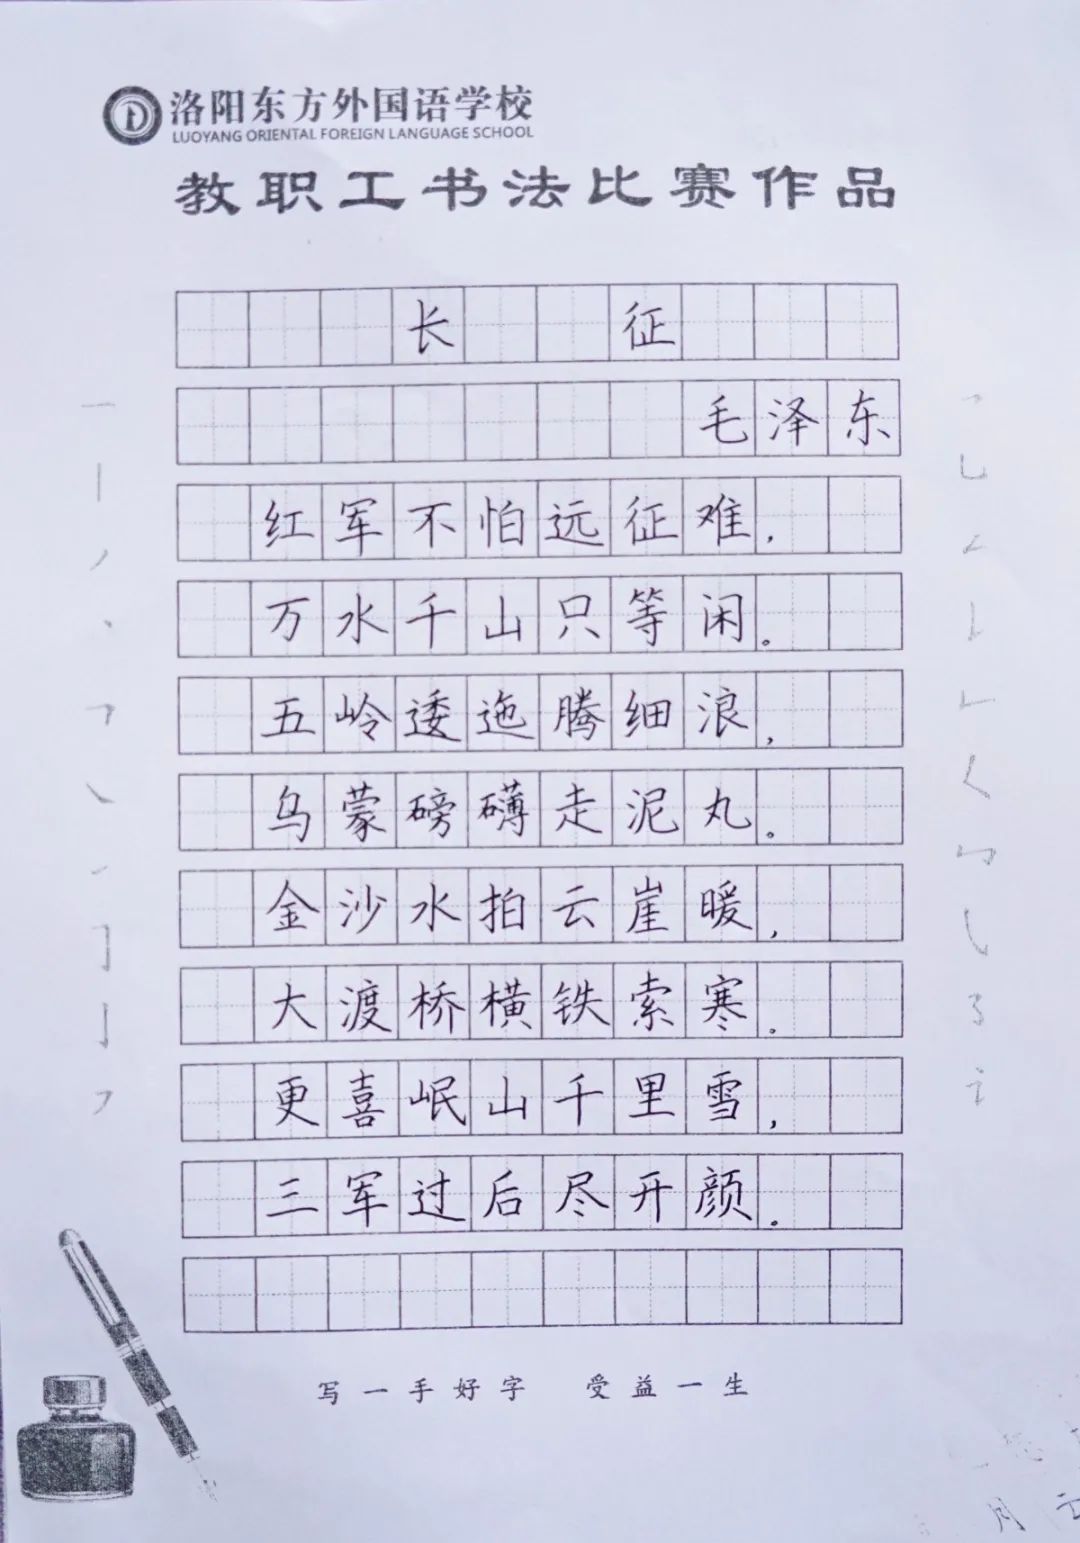 洛阳东方外国语学校
LUOYANG ORIENTAL FOREIGN LANGUAGE SCHOOL
教职工书法比赛作品
长征
毛泽东
红军不怕远征难，
万水千山只等闲。
五岭逶迤腾细浪，
乌蒙磅礴走泥丸。
金沙水拍云崖暖，
大渡桥横铁索寒。
更喜岷山千里雪，
三军过后尽开颜。
写一手好字 受益一生